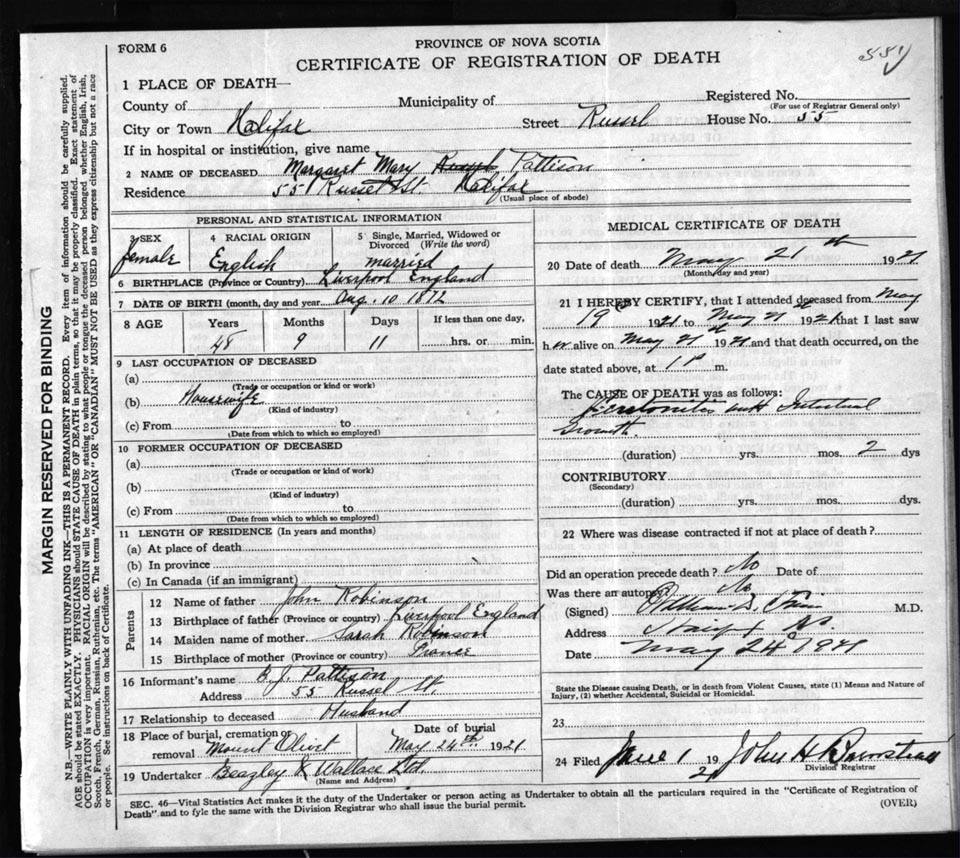 FORM 6
PROVINCE OF NOVA SCOTIA
CERTIFICATE OF REGISTRATION OF DEATH
551
1 PLACE OF DEATH—
County of Municipality of Registered No.
(For use of Registrar General only)
City or Town Halifax Street Russel House No. 55
If in hospital or institution, give name
2 NAME OF DECEASED Margaret Mary Pattison
Residence 55 Russel St. Halifax
(Usual place of abode)
PERSONAL AND STATISTICAL INFORMATION
3 SEX 4 RACIAL ORIGIN 5 Single, Married, Widowed or
Divorced (Write the word)
female English married
6 BIRTHPLACE (Province or Country) Liverpool England
7 DATE OF BIRTH (month, day and year Aug. 10 1872
8 AGE Years Months Days If less than one day,
48 9 11 hrs. or min.
9 LAST OCCUPATION OF DECEASED
(a)
(Trade or occupation or kind or work)
(b) Housewife
(Kind of industry)
(c) From to
(Date from which to which so employed)
10 FORMER OCCUPATION OF DECEASED
(a)
(Trade or occupation or kind of work)
(b)
(Kind of industry)
(c) From to
(Date from which to which so employed)
11 LENGTH OF RESIDENCE (In years and months)
(a) At place of death
(b) In province
(c) In Canada (if an immigrant)
Parents
12 Name of father John Robinson
13 Birthplace of father (Province or country) Liverpool England
14 Maiden name of mother Sarah Robinson
15 Birthplace of mother (Province or country) France
16 Informant's name B.J. Pattison
Address 55 Russel St.
17 Relationship to deceased Husband
18 Place of burial, cremation or Date of burial
removal Mount Olivet May 24th 1921
19 Undertaker Beazley & Wallace Ltd.
(Name and Address)
MEDICAL CERTIFICATE OF DEATH
20 Date of death May 21st 1921
(Month, day and year)
21 I HEREBY CERTIFY, that I attended deceased from May
19 1921 to May 21st 1921 that I last saw
her alive on May 21st 1921 and that death occurred, on the
date stated above, at 1 P m.
The CAUSE OF DEATH was as follows:
Peretonites with Intestinal
Growth.
(duration) yrs. mos. 2 dys
CONTRIBUTORY
(Secondary)
(duration) yrs. mos. dys.
22 Where was disease contracted if not at place of death?
Did an operation precede death? No Date of
Was there an autopsy? No
(Signed) William D. M.D.
Address NS.
Date May 24 1921
State the Disease causing Death, or in death from Violent Causes, state (1) Means and Nature of
Injury, (2) whether Accidental, Suicidal or Homicidal.
23
24 Filed June 1 1921 John H
Division Registrar
SEC. 46—Vital Statistics Act makes it the duty of the Undertaker or person acting as Undertaker to obtain all the particulars required in the "Certificate of Registration of
Death" and to fyle the same with the Division Registrar who shall issue the burial permit. (OVER)
MARGIN RESERVED FOR BINDING
N.B.—WRITE PLAINLY WITH UNFADING INK—THIS IS A PERMANENT RECORD. Every item of information should be carefully supplied.
AGE should be stated EXACTLY. PHYSICIANS should STATE CAUSE OF DEATH in plain terms, so that it may be properly classified. Exact statement of
OCCUPATION is very important. RACIAL ORIGIN will be described by stating to what people or tongue the deceased person belonged whether English, Irish,
Scotch, French, German, Russian, Ruthenian, etc. The terms "AMERICAN" OR "CANADIAN" MUST NOT BE USED as they express citizenship but not a race
or people. See instructions on back of Certificate.